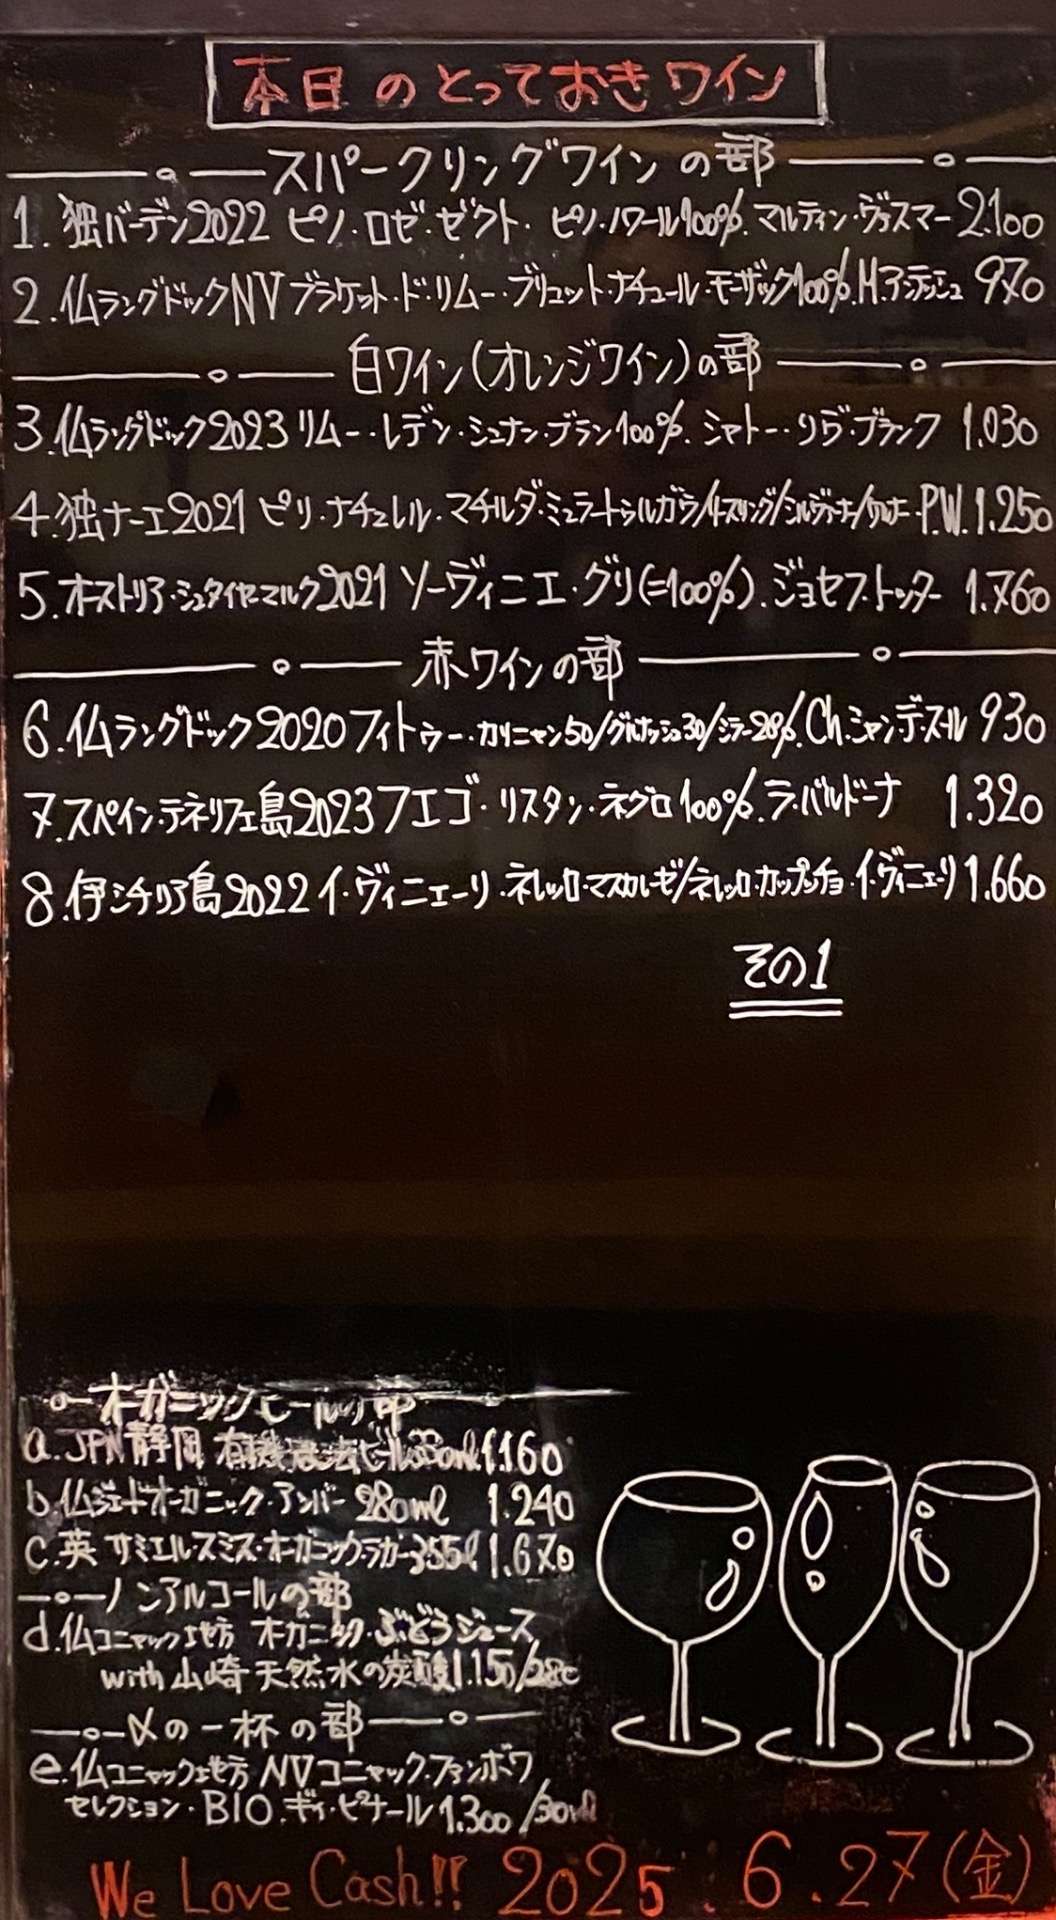 本日のとっておきワイン
スパークリングワインの部
1. 独バーデン2022 ピノ・ロゼ・ゼクト・ ピノ・ノワール100%. マルティン・ヴァスマー 2.100
2. 仏ラングドックNV ブラケット・ド・リムー・ブリュット・ナチュール・モーザック100%. M.アンテッシュ 970
白ワイン(オレンジワイン)の部
3. 仏ラングドック2023 リムー・レデン・シュナン・ブラン100%. シャトー・リヴ・ブランク 1.030
4. 独ナーエ2021 ピリ・ナチュレル・マチルダ・ミュラートゥルガウ/リースリング/シルヴァーナー/ P.W. 1.250
5. オーストリア・シュタイヤーマルク2021 ソーヴィニエ・グリ(=100%). ジョセフ・トッター 1.760
赤ワインの部
6. 仏ラングドック2020 フィトゥー・カリニャン50/グルナッシュ30/シラー20%. Ch.シャン・デ・スール 930
7. スペイン・テネリフェ島2023 フエゴ・リスタン・ネグロ100%. ラ・バルドーナ 1.320
8. 伊シチリア島2022 イ・ヴィニェーリ・ネレッロ・マスカレーゼ/ネレッロ・カップッチョ・イ・ヴィニェーリ 1.660
その1
オーガニックビールの部
a. JPN静岡 有機農法ビール 330ml 1.160
b. 仏ジェードオーガニック・アンバー 280ml 1.240
c. 英 サミエル・スミス・オーガニックラガー355ml 1.670
ノンアルコールの部
d. 仏コニャック地方 オーガニック・ぶどうジュース
with 山崎 天然水の炭酸 1.150/280
〆の一杯の部
e. 仏コニャック地方 NVコニャック・ファンボワ
セレクション・BIO. ギィ・ピナール 1.300/30ml
We Love Cash!! 2025. 6.27(金)